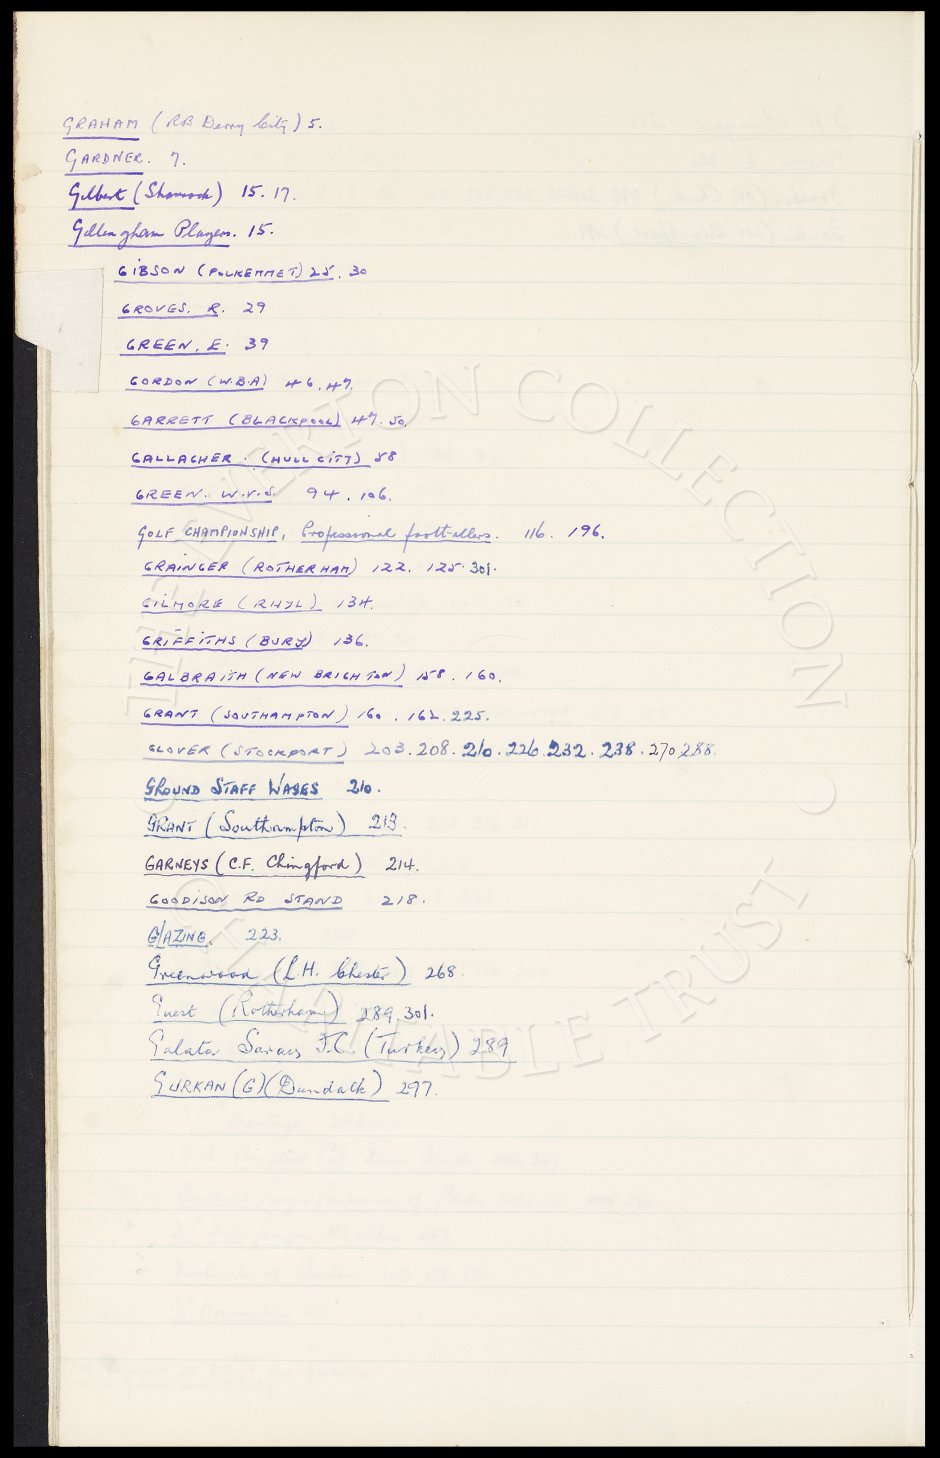 GRAHAM (RB Derry City) 5.
GARDNER. 7.
Gilbert (Shamrock) 15. 17.
Gillingham Players. 15.
GIBSON (POLKEMMET) 25. 30
GROVES. R. 29
GREEN. E. 39
GORDON (W.B.A) 46. 47.
GARRETT (BLACKPOOL) 47. 50.
GALLAGHER. (HULL CITY) 58
GREEN. W.V.S. 94. 106.
GOLF CHAMPIONSHIP, Professional footballers. 116. 196.
GRAINGER (ROTHERHAM) 122. 125. 301.
GILMORE (RHYL) 134.
GRIFFITHS (BURY) 136.
GALBRAITH (NEW BRIGHTON) 158. 160.
GRANT (SOUTHAMPTON) 160. 162. 225.
GLOVER (STOCKPORT) 203. 208. 210. 226. 232. 238. 270. 288.
GROUND STAFF WAGES 210.
GRANT (Southampton) 213.
GARNEYS (C.F. Chingford) 214.
GOODISON RD STAND 218.
GLAZING. 223.
Greenwood (L.H. Chester) 268.
Guest (Rotherham) 289. 301.
Galata Saray F.C. (Turkey) 289
GURKAN (G) (Dundalk) 297.
THE EVERTON COLLECTION CHARITABLE TRUST